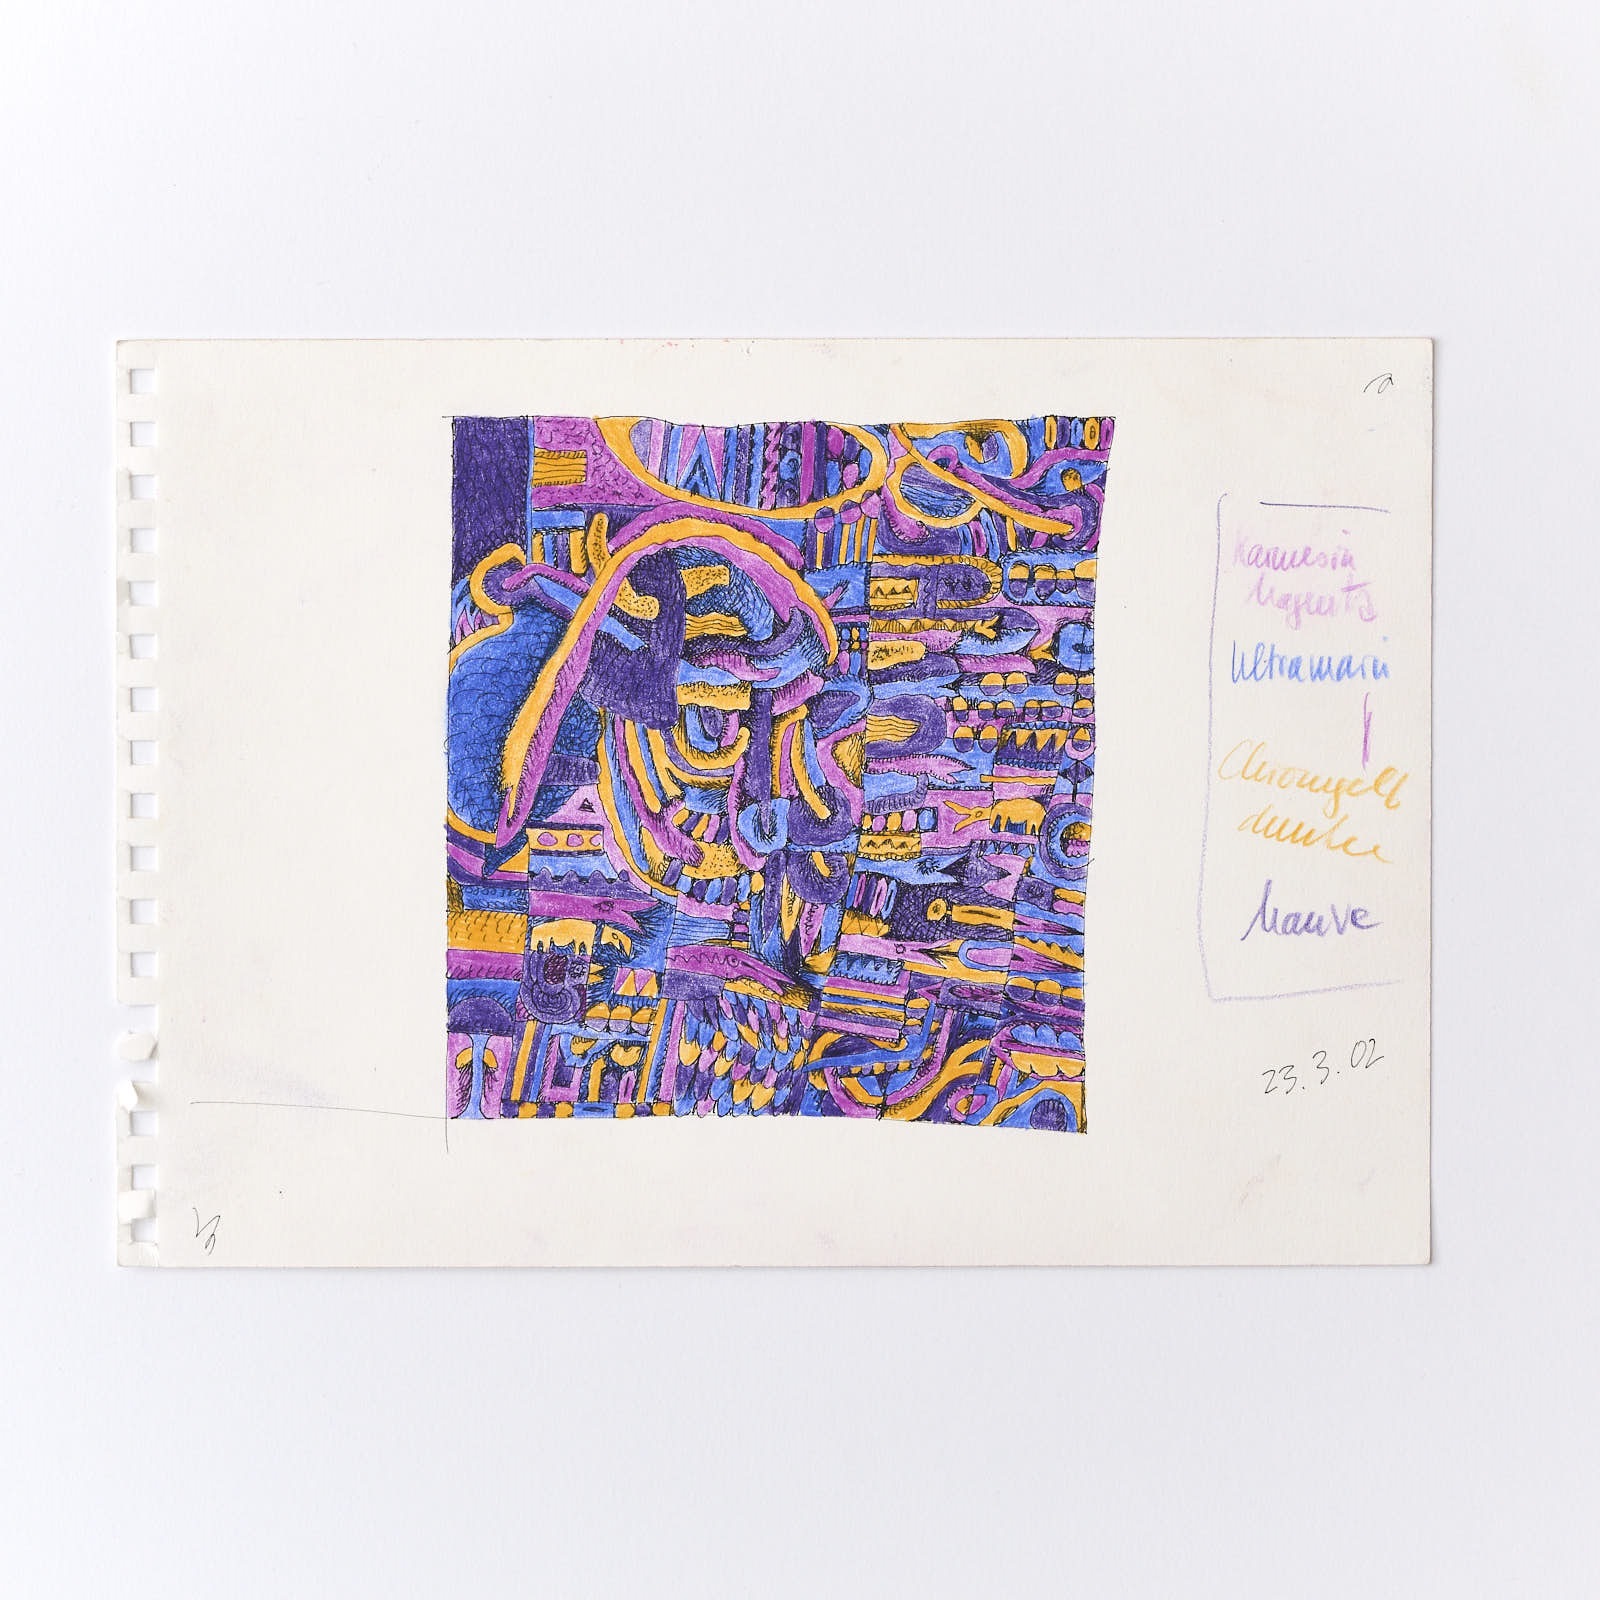 Karmesin
Magenta
Ultramarin
Chromgelb
dunkel
Mauve
23.3.02